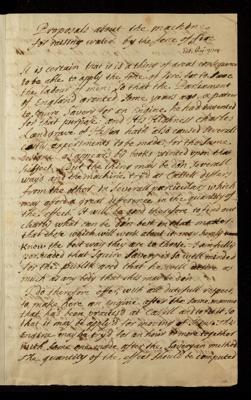 Proposals about the machine
for raising water by the force of fire
It is certain that it is a thing of great consequence
to be able to apply the force of fire for to save
the labour of men; so that the Parliament
of England granted some years ago, a patent
to Squire Savery for an Engine he had invented
for that purpose: and His Highness Charles
Landgrave of Hesse hath also caused severall
costly experiments to be made for the same
designe as appears by books printed upon that
subject. But the thing may be don severall
ways and the machine tryd at Cassell differs
from the other in severall particulars which
may afford a great difference in the quantity of
the effect. It will be good therefore to find out
clearly what can be don best in that matter
that those which will work about it may
know the best way they are to choose. I am fully
persuaded that Squire Savery is so well minded
for the publick and that he will desire as
much as any body that this may be don.
I do therefore offer, with all dutifull respect,
to make here an Engine, after the same manner
that has been practised at Cassell and to fit it so
that it may be applyd for the moving of ships. This
Engine may be tryd for an hour or more together
with some one made after the Saveryan method
The quantity of the effect should be computed